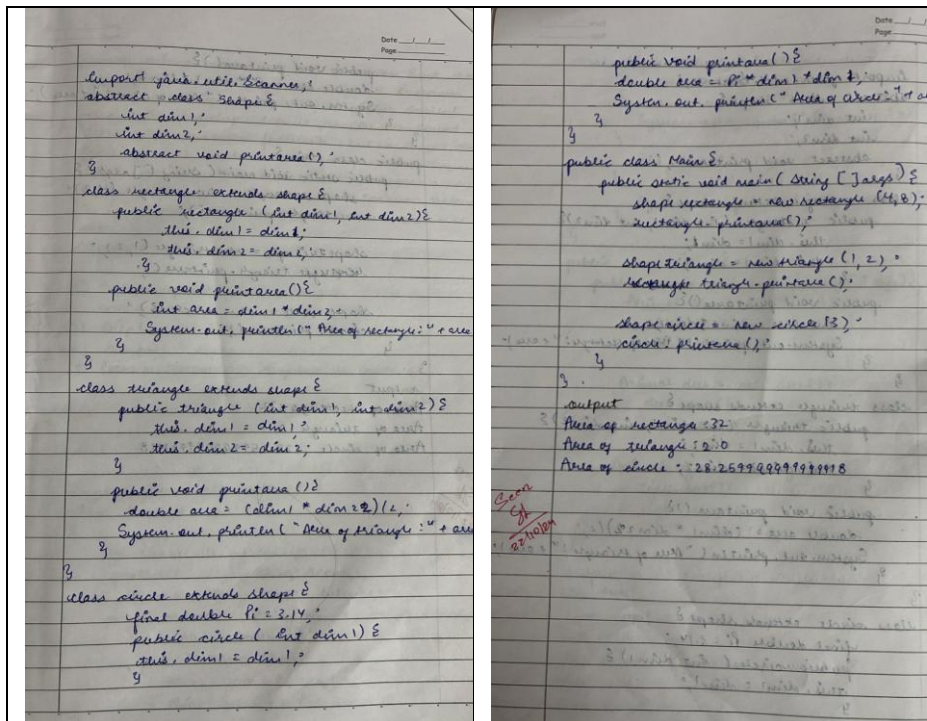 Date __/__/__
Page
import java.util.Scanner;
abstract class shape {
int dim1;
int dim2;
abstract void printarea();
}
class rectangle extends shape {
public rectangle (int dim1, int dim2) {
this.dim1 = dim1;
this.dim2 = dim2;
}
public void printarea() {
int area = dim1 * dim2;
System.out.println("Area of rectangle:" + area
}
}
class triangle extends shape {
public triangle (int dim1, int dim2) {
this.dim1 = dim1;
this.dim2 = dim2;
}
public void printarea() {
double area = (dim1 * dim2)/2;
System.out.println("Area of triangle:" + area
}
}
class circle extends shape {
final double Pi = 3.14;
public circle (int dim1) {
this.dim1 = dim1;
}
Date __/__/__
Page
public void printarea() {
double area = Pi * dim1 * dim1;
System.out.println("Area of circle:" + a
}
}
public class Main {
public static void main(String []args) {
shape rectangle = new rectangle (4,8);
rectangle.printarea();
shape triangle = new triangle (1, 2);
triangle.printarea();
shape circle = new circle (3);
circle.printarea();
}
}
output
Area of rectangle : 32
Area of triangle : 2.0
Area of circle : 28.259999999999998
Seen
22/10/24